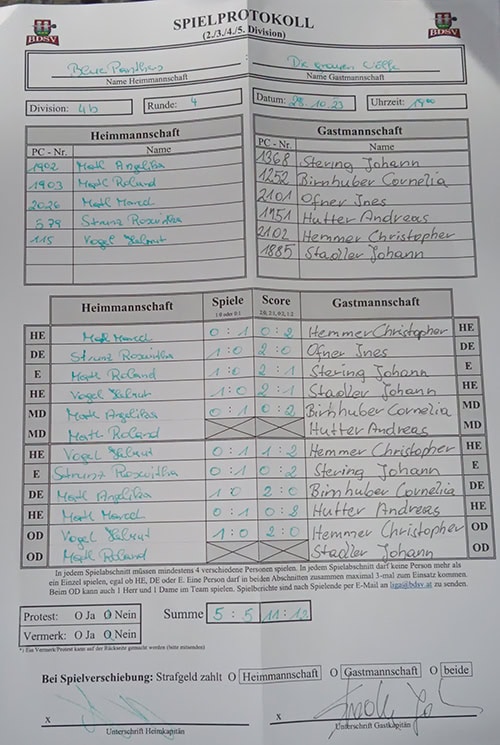 BDSV SPIELPROTOKOLL BDSV
(2./3./4./5. Division)
Blue Panthers Die grauen Wölfe
Name Heimmannschaft Name Gastmannschaft
Division: 4b Runde: 4 Datum: 28.10.23 Uhrzeit: 19⁰⁰
Heimmannschaft Gastmannschaft
PC - Nr. Name PC - Nr. Name
1902 Marth Angelika 1368 Stering Johann
1903 Marth Roland 1252 Birnhuber Cornelia
2026 Marth Marcel 2101 Ofner Ines
579 Strunz Roswitha 1751 Hutter Andreas
115 Vogel Helmut 2102 Hemmer Christopher
1885 Stadler Johann
Heimmannschaft Spiele Score Gastmannschaft
1:0 oder 0:1 2:0, 2:1, 0:2, 1:2
HE Marth Marcel 0 : 1 0 : 2 Hemmer Christopher HE
DE Strunz Roswitha 1 : 0 2 : 0 Ofner Ines DE
E Marth Roland 1 : 0 2 : 1 Stering Johann E
HE Vogel Helmut 1 : 0 2 : 1 Stadler Johann HE
MD Marth Angelika 0 : 1 0 : 2 Birnhuber Cornelia MD
MD Marth Roland Hutter Andreas MD
HE Vogel Helmut 0 : 1 1 : 2 Hemmer Christopher HE
E Strunz Roswitha 0 : 1 0 : 2 Stering Johann E
DE Marth Angelika 1 : 0 2 : 0 Birnhuber Cornelia DE
HE Marth Marcel 0 : 1 0 : 2 Hutter Andreas HE
OD Vogel Helmut 1 : 0 2 : 0 Hemmer Christopher OD
OD Marth Roland Stadler Johann OD
In jedem Spielabschnitt müssen mindestens 4 verschiedene Personen spielen. In jedem Spielabschnitt darf keine Person mehr als
ein Einzel spielen, egal ob HE, DE oder E. Eine Person darf in beiden Abschnitten zusammen maximal 3-mal zum Einsatz kommen.
Beim OD kann auch 1 Herr und 1 Dame im Team spielen. Spielberichte sind nach Spielende per E-Mail an liga@bdsv.at zu senden.
Protest: O Ja O Nein Summe 5 : 5 11 : 12
Vermerk: O Ja O Nein
*: Ein Vermerk/Protest kann auf der Rückseite gemacht werden (bitte mitsenden)
Bei Spielverschiebung: Strafgeld zahlt O Heimmannschaft O Gastmannschaft O beide
x x
Unterschrift Heimkapitän Unterschrift Gastkapitän